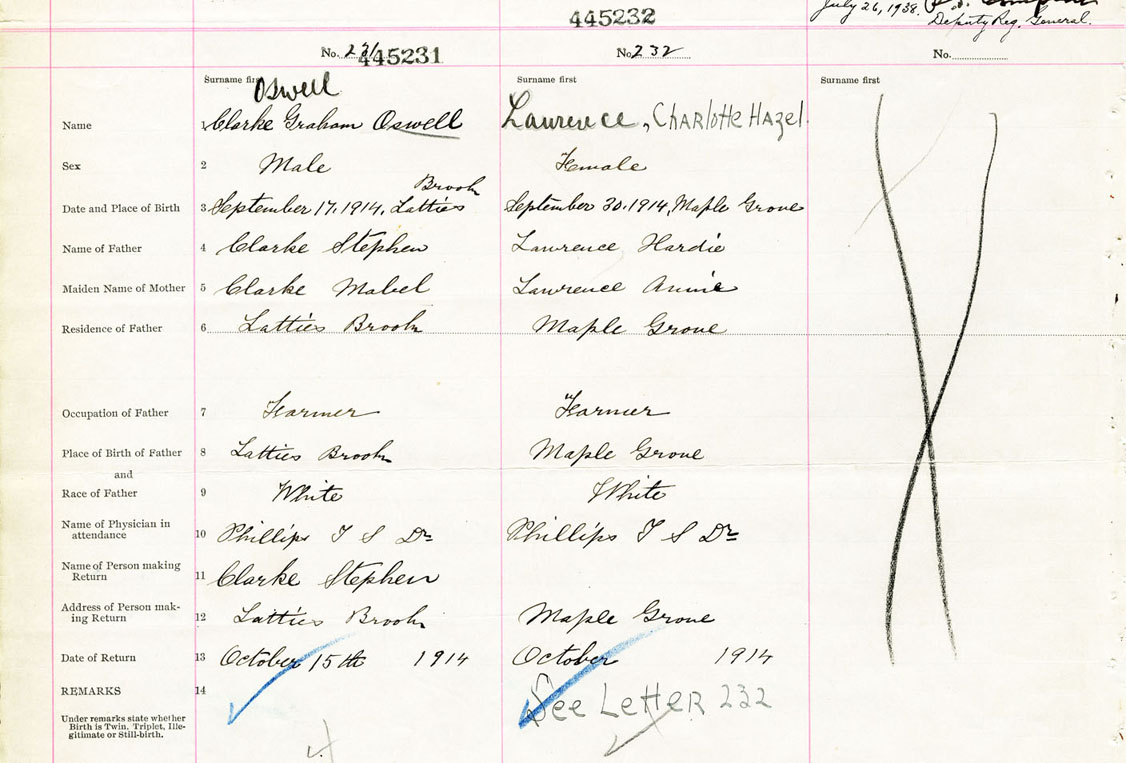 445232
July 26, 1938.
Deputy Reg. General.
No. 231 445231 No. 232 No.
Surname first Surname first Surname first
Oswell
Name 1 Clarke Graham Oswell Lawrence, Charlotte Hazel
Sex 2 Male Female
Brook
Date and Place of Birth 3 September 17. 1914, Latties September 30. 1914, Maple Grove
Name of Father 4 Clarke Stephen Lawrence Hardie
Maiden Name of Mother 5 Clarke Mabel Lawrence Annie
Residence of Father 6 Latties Brook Maple Grove
Occupation of Father 7 Farmer Farmer
Place of Birth of Father 8 Latties Brook Maple Grove
and
Race of Father 9 White White
Name of Physician in
attendance 10 Phillips T S Dr Phillips T S Dr
Name of Person making
Return 11 Clarke Stephen
Address of Person mak-
ing Return 12 Latties Brook Maple Grove
Date of Return 13 October 15th 1914 October 1914
REMARKS 14 See Letter 232
Under remarks state whether
Birth is Twin. Triplet, Ille-
gitimate or Still-birth.